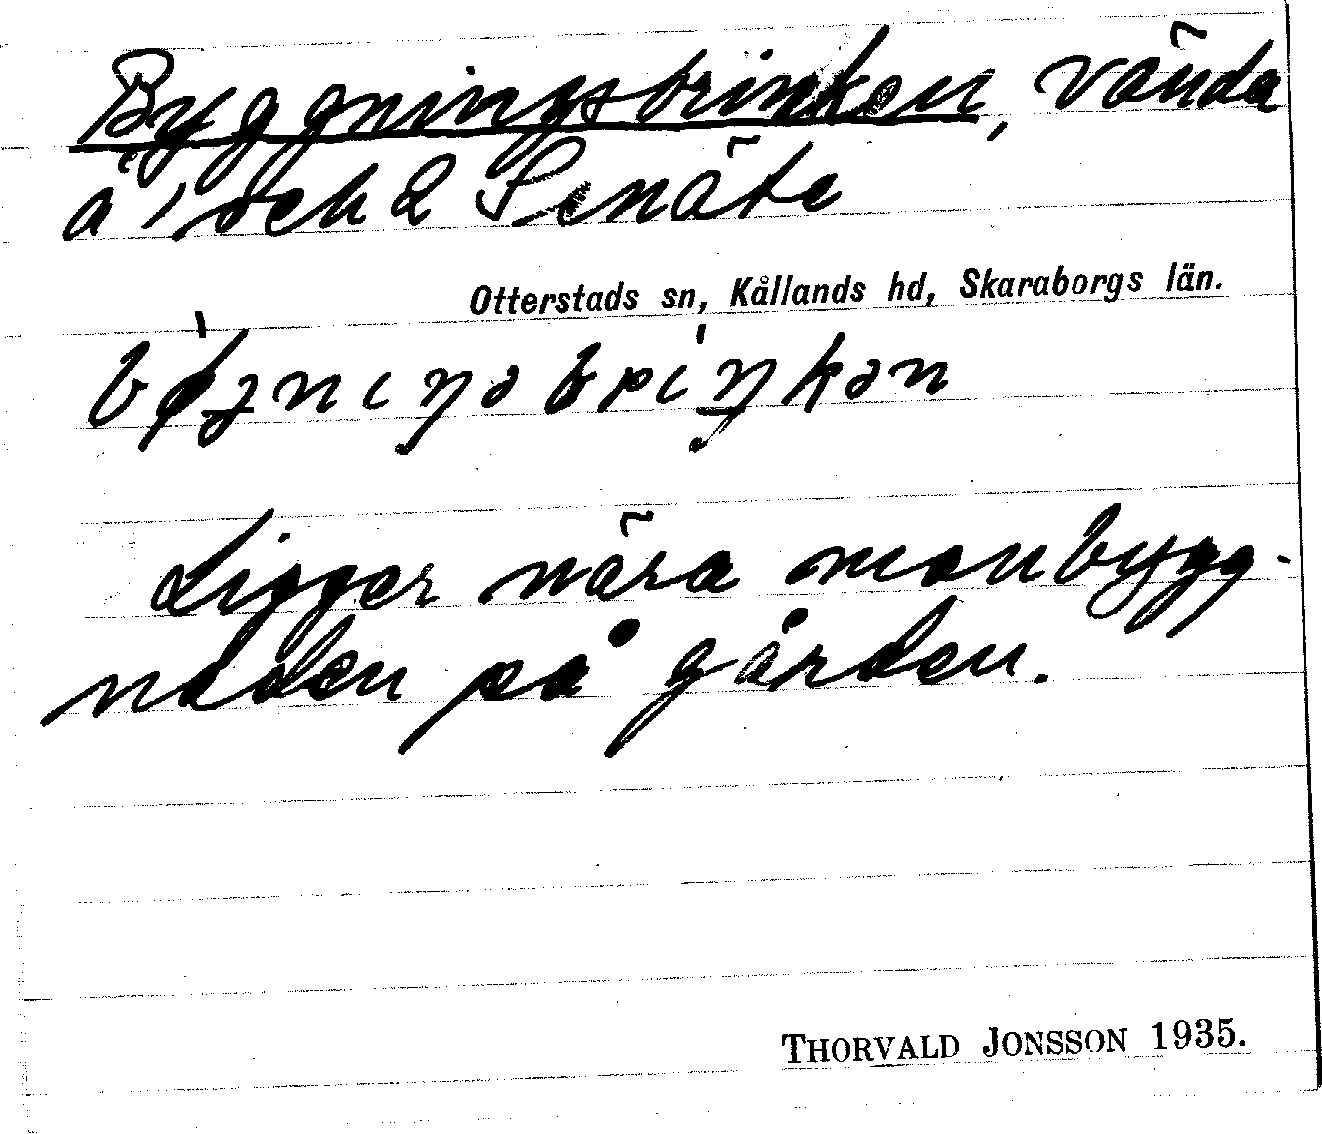 Byggningsbrinken, vända
å 1 och 2 Senäte
Otterstads sn, Kållands hd, Skaraborgs län.
Ligger nära manbygg-
naden på gården.
THORVALD JONSSON 1935.